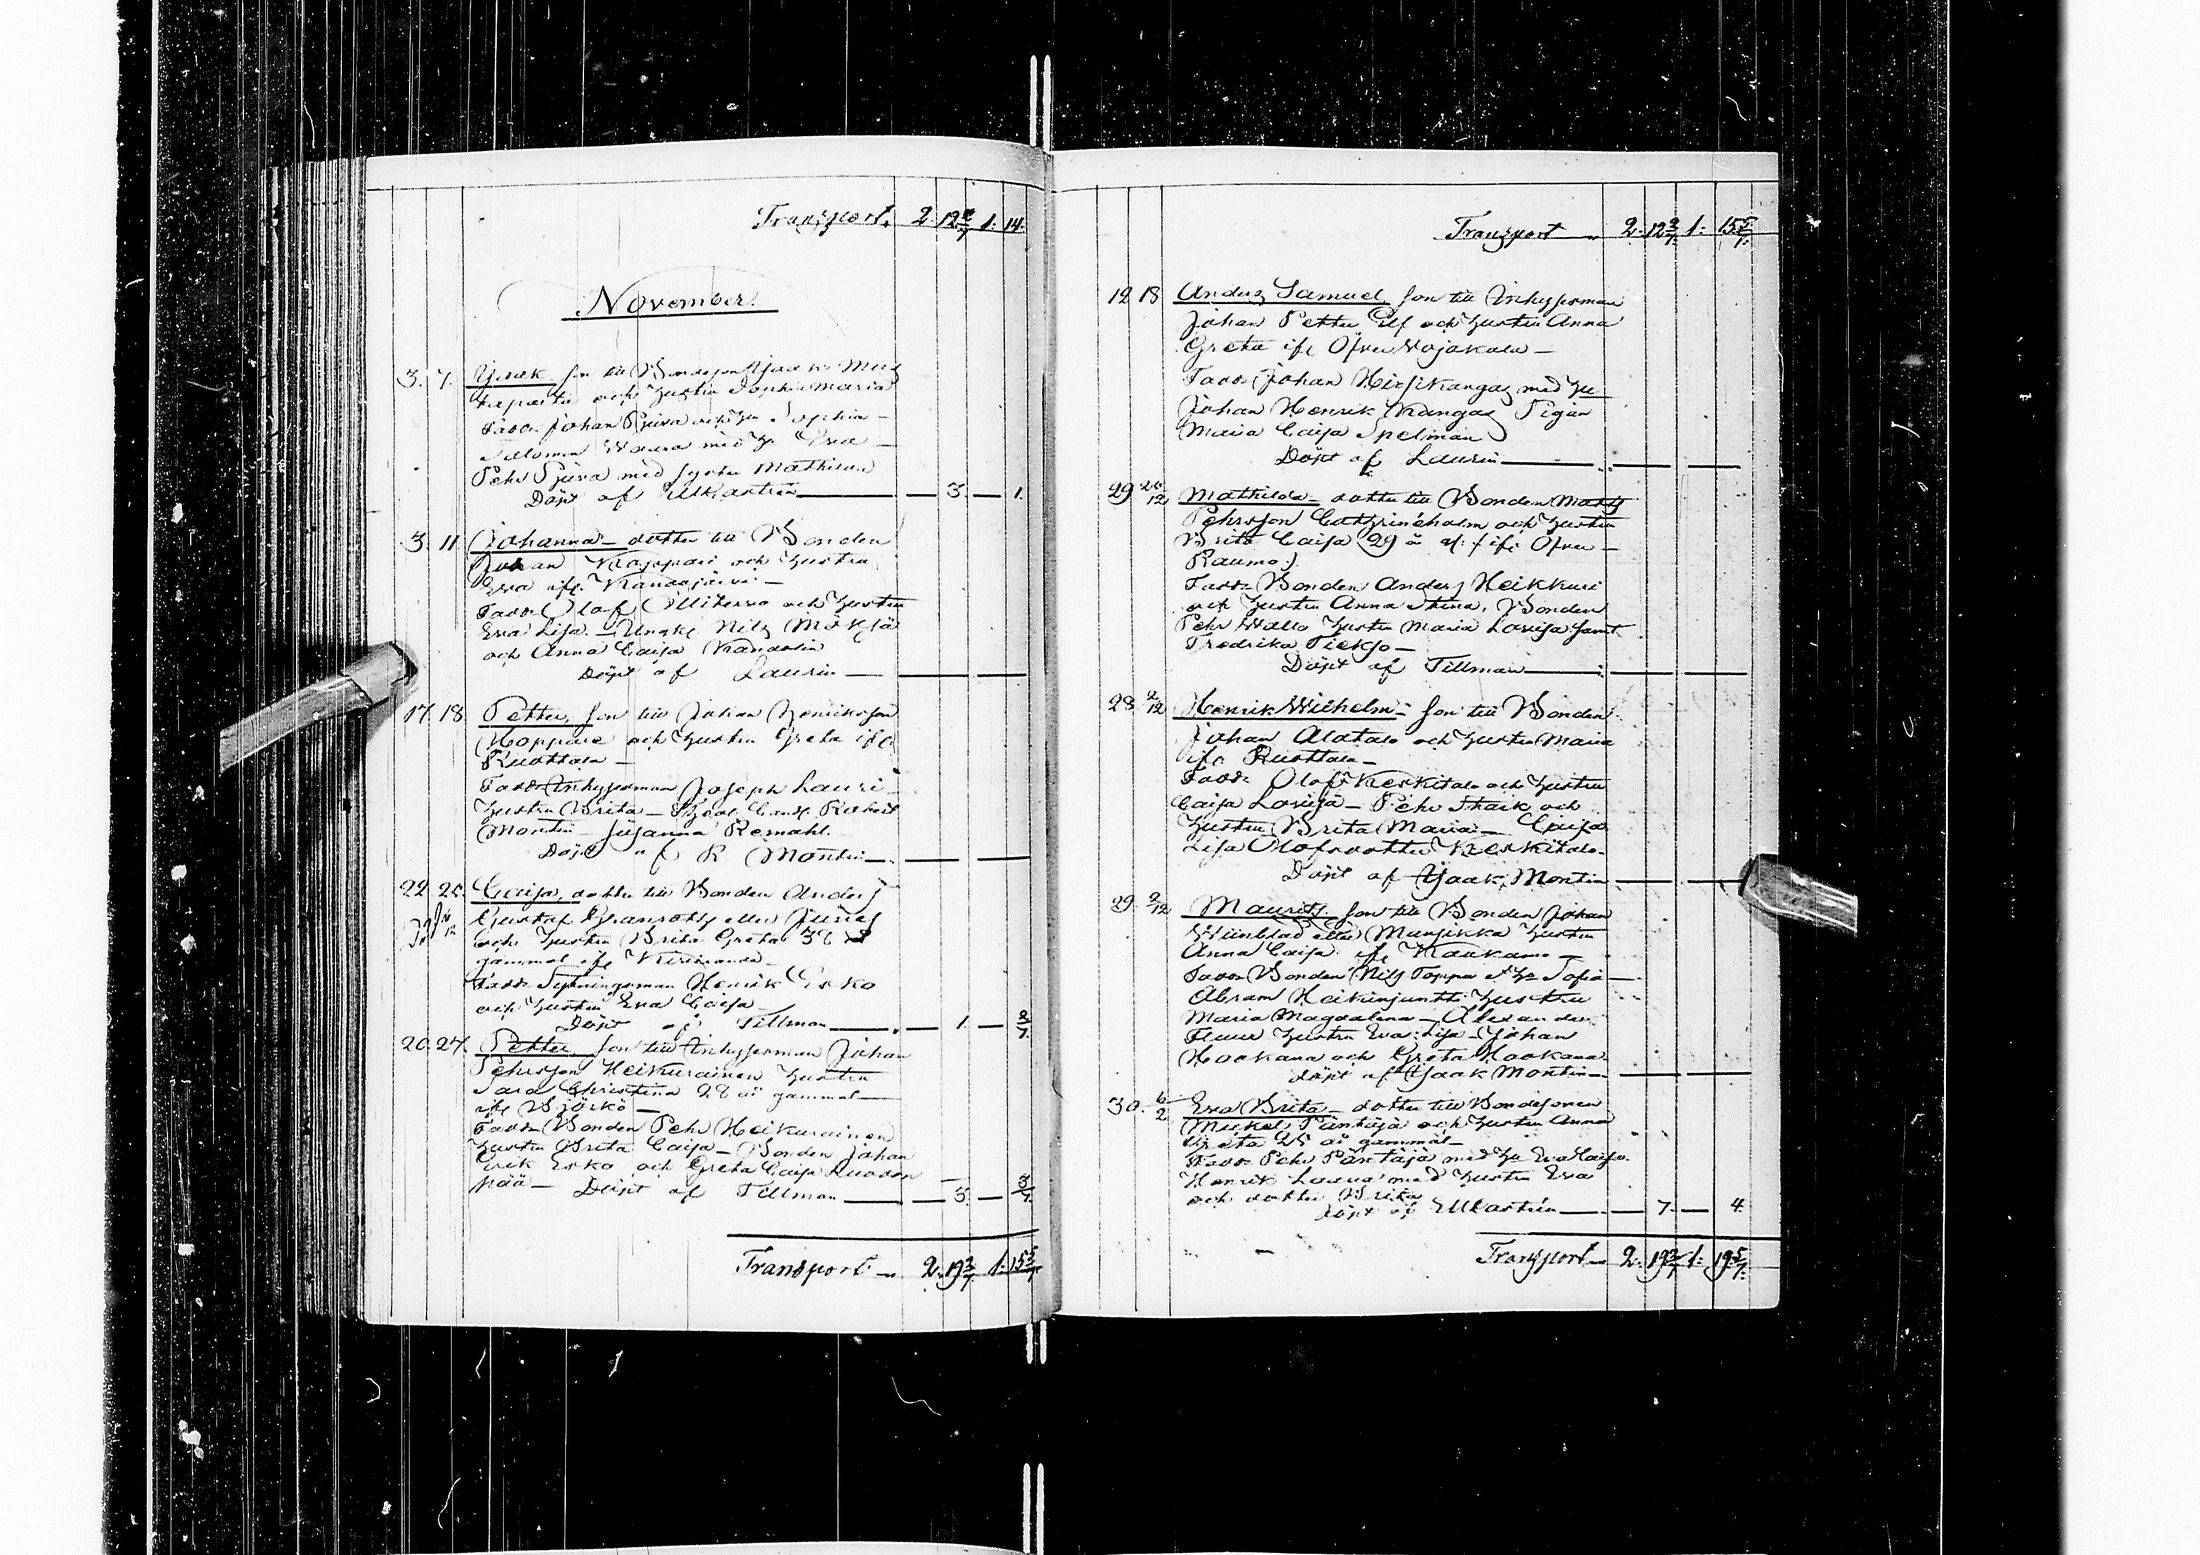 Transport. 2. 12 2/7 1. 14.
November.
3. 7. Isaak son till Bondesonen Isaak Mus
taparta och hustru Sophia Maria
Fadd. Johan Rjuva och hu Sophia
Salomon Waara med hu Eva
Pehr Rjuva med syster Mathilda
Döpt af UlKastrén — 3. — 1.
3. 11 Johanna — dotter till Bonden
Johan Koppari och hustru
Eva ifr. Kandojärvi —
Fadd. Olof och hustru
Eva Lisa. — Ungk. Nils Mäkjä
och Anna Caisa Kandolin
Döpt af Laurin —
17. 18. Petter, son till Johan Henriksson
Hoppare och hustru Greta ifr.
Ruottala —
Fadd. Inhysesman Joseph Lauri
hustru Brita — Theol. Cand. Robert
Montin — Susanna Remahl.
Döpt af R Montin —
22. 25. Caisa, dotter till Bonden Anders
Gustaf Granroth, eller Junes
och hustru Brita Greta 36 år
gammal ifr.
Fadd. Sexmansman Henrik Erko
och hustru Eva Caisa —
Döpt af Tillman — 1. — 2/7.
20. 27. Petter, son till Inhysesman Johan
Pehrsson Heikurainen hustru
Sara Christina 28 år gammal —
ifr. Björkö —
Fadd. Bonden Pehr Heikurainen
hustru Brita Caisa — Bonden Johan
Erik Erko och Greta Caisa Ruodon
pää — Döpt af Tillman — 3. — 3/7.
Transport — 2. 19 2/7 1. 15 5/7.
Transport — 2. 12 2/7. 1. 15 5/7.
12 18 Anders Samuel, son till Inhysesman
Johan Petter och hustru Anna
Greta ifr. Öfver Vojakala —
Fadd. Johan Hirsikangas med hu
Johan Henrik Kangas Pigan
Maria Caisa Spelman
Döpt af Laurin —
29 26/12 Mathilda — dotter till Bonden Matts
Pehrsson Cathrineholm och hustru
Brita Caisa 29 år ifr. Öfver —
Raumo.
Fadd. Bonden Anders Heikkuri
och hustru Anna Stina, Bonden
Pehr Wallo hustru Maria Lovisa samt
Fredrika Piekjo —
Döpt af Tillman —
28 2/12 Henrik Wilhelm — son till Bonden
Johan Alatalo och hustru Maria
ifr. Ruottala —
Fadd. Olof Keskitalo och hustru
Caisa Lovisa — Pehr Thaik och
hustru Brita Maria — Caisa
Lisa Olofsdotter Keskitalo.
Döpt af Isaak Montin
29. 2/12 Maurits, son till Bonden Johan
Wiinblad eller Munsikka hustru
Anna Caisa. ifr. Kaakamo —
Fadd. Bonden Nils Toppo & hu Sofia —
Abram Heikinjuntti hustru
Maria Magdalena — Alexander
hustru Eva Lisa — Johan
Hookana och Greta Hookana
Döpt af Isaak Montin —
30. 6/2 Eva Brita — dotter till Bondesonen
Mickel Päntäjä och hustru Anna
Greta 25 år gammal —
Fadd. Pehr Päntäjä med hu Eva Caisa.
Henrik med hustru Eva
och dotter Brita
Döpt af UlKastrén — 7. — 4.
Transport — 2. 19 2/7 1. 19 5/7.